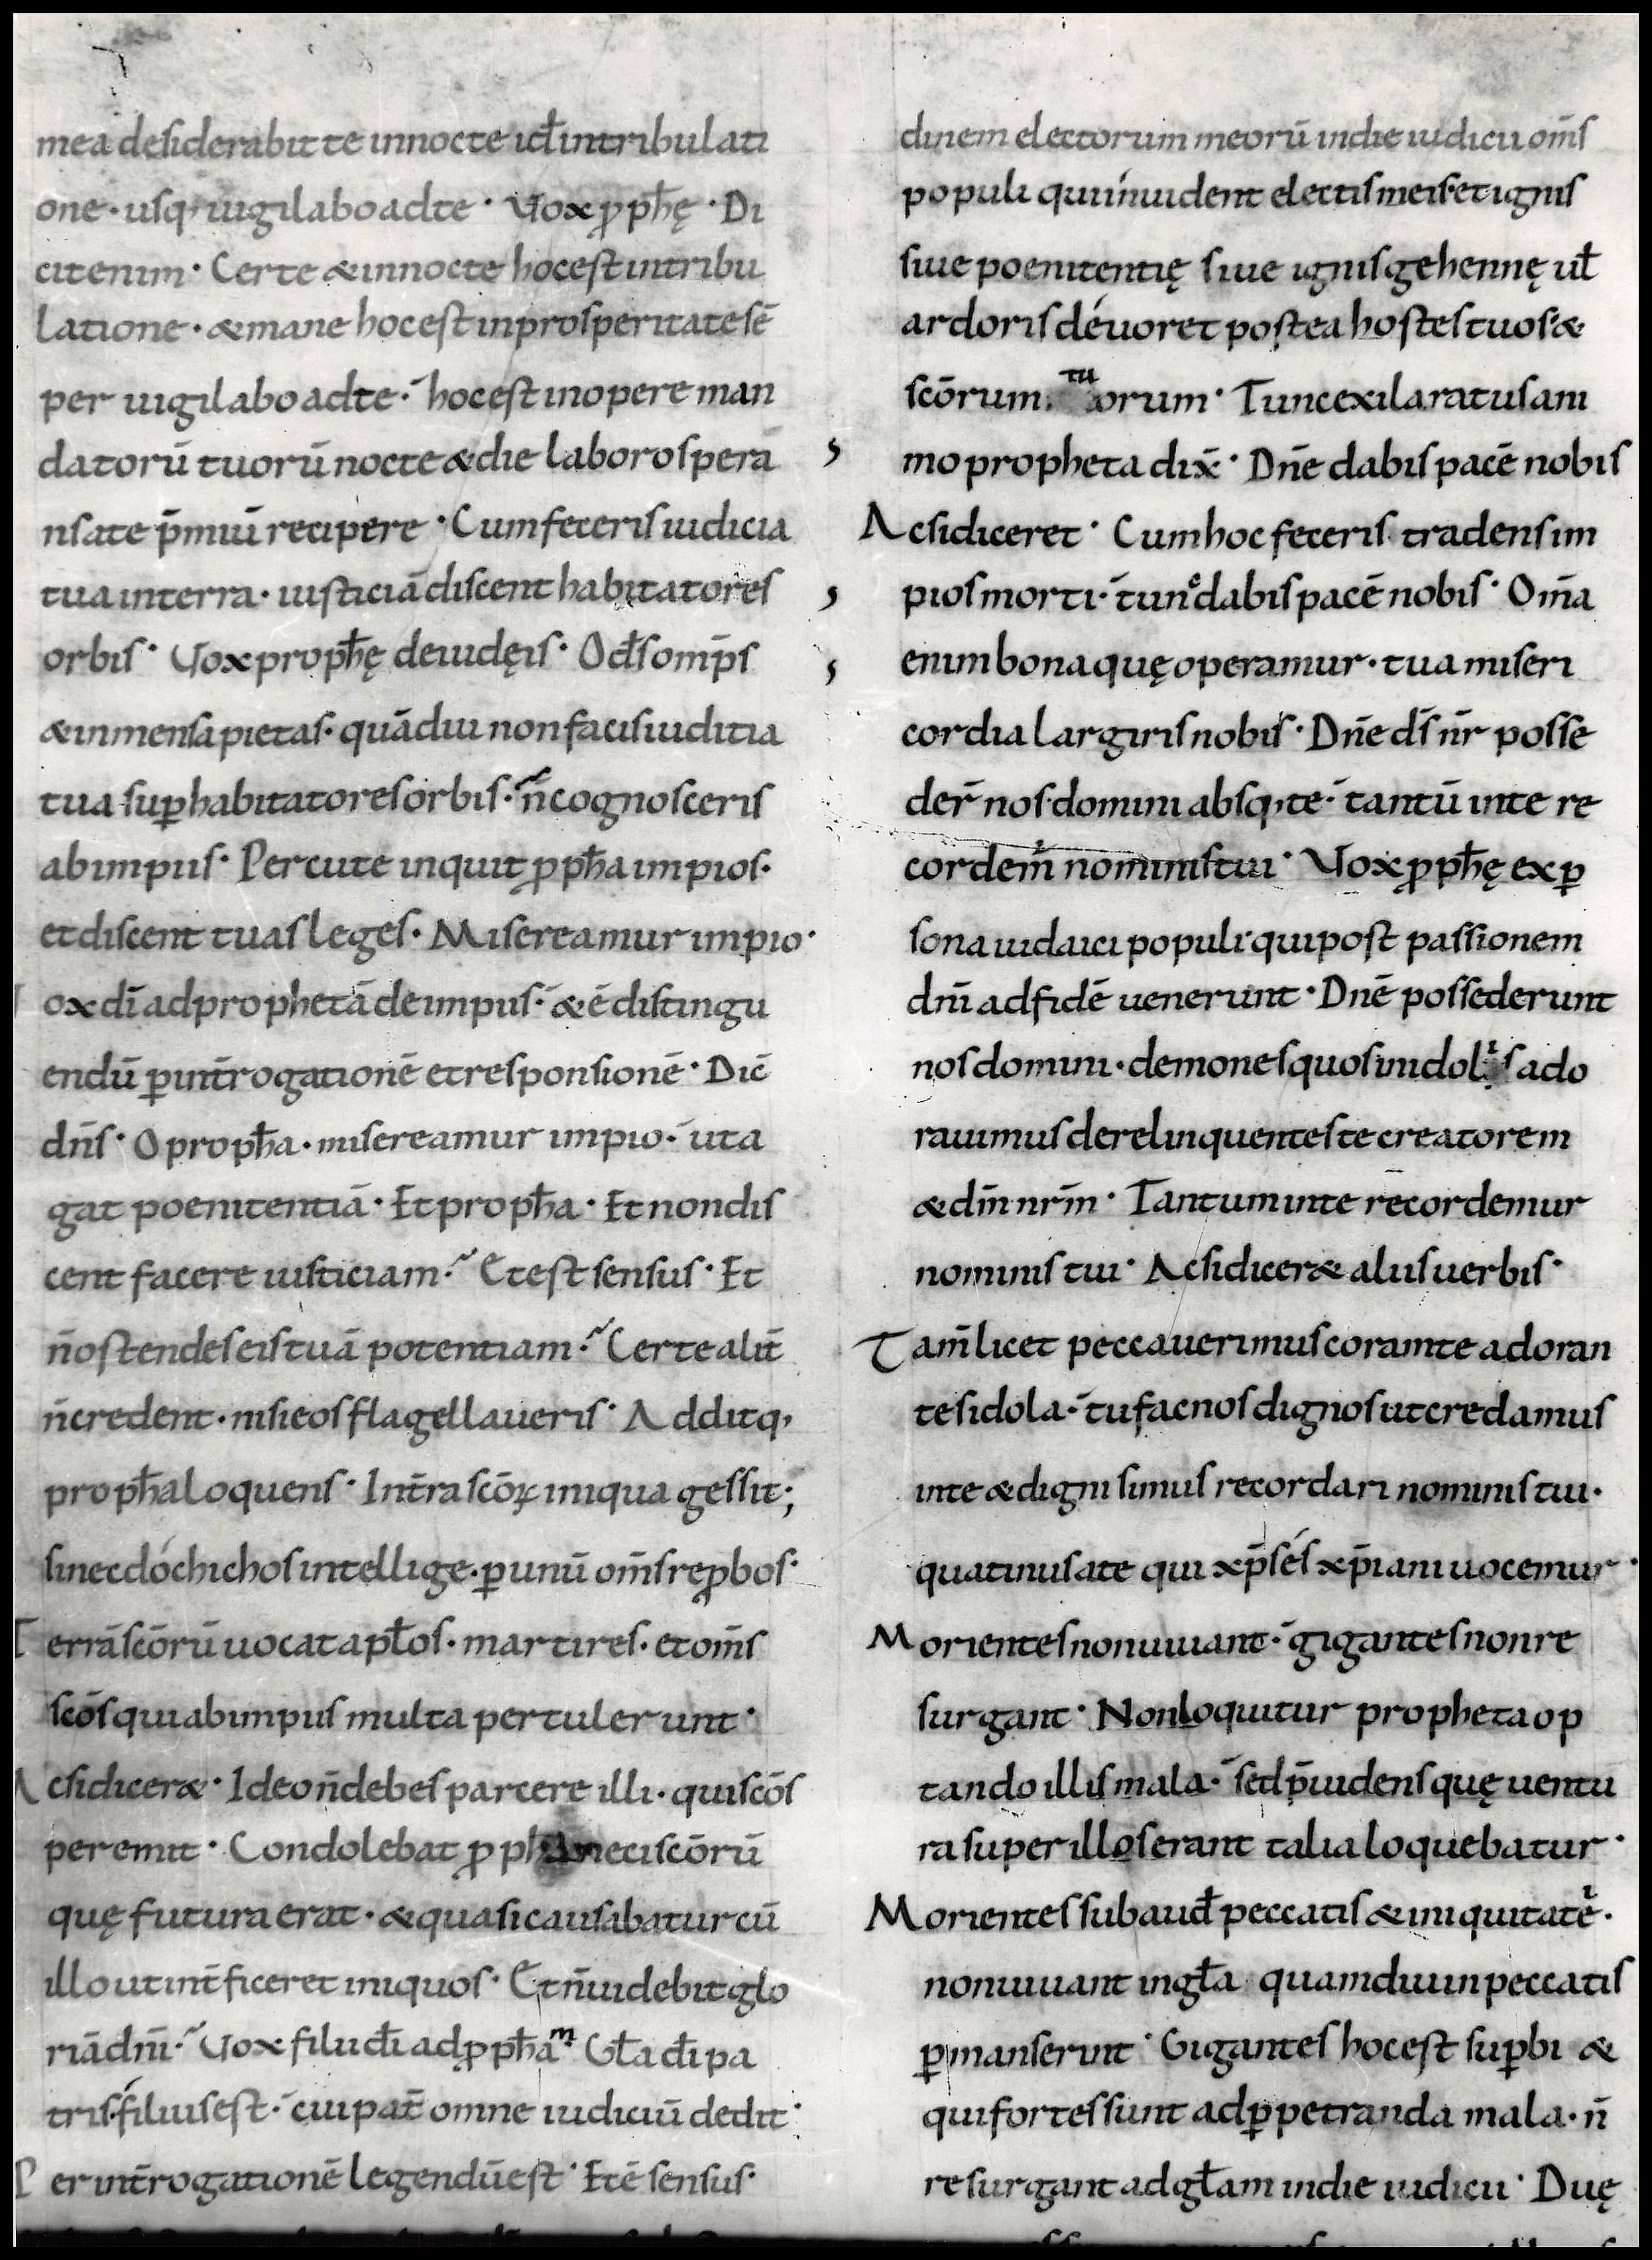 mea desiderabit te in nocte id ł in tribulati
one · usq; uigilabo ad te · Vox ꝓph̄ę · Di
cit enim · Certe & in nocte hoc est in tribu
latione · & mane hoc est in prosperitate sē
per uigilabo ad te · hoc est in opere man
datorū tuorū nocte & die laboro sperā
ns a te p̄miū recipere · Cum feceris iudicia
tua in terra · iusticiā discent habitatores
orbis · Vox proph̄ę de iudęis · O d̄s omp̄s
& inmensa pietas · quādiu non facis iuditia
tua suꝑ habitatores orbis · n̄ cognosceris
ab impiis · Percute inquit ꝓph̄a impios ·
et discent tuas leges · Misereamur impio ·
ox dī ad prophetā de impiis · & ē distingu
endū ꝑ int̄rogationē et responsionē · Dic̄
dn̄s · O proph̄a · misereamur impio · ut a
gat poenitentiā · Et proph̄a · Et non dis
cent facere iusticiam · Et est sensus · Et
n̄ ostendes eis tuā potentiam · Certe alit̄
n̄ credent · nisi eos flagellaueris · Additq;
proph̄a loquens · In t̄ra scōꝝ iniqua gessit ;
sinecdóchichos intellige · ꝑ unū om̄s reꝓbos ·
T errā scōrū uocat apł̄os · martires · et om̄s
scōs qui ab impiis multa pertulerunt ·
A csi dicer& · Ideo n̄ debes parcere illi · qui scōs
peremit · Condolebat ꝓph neci scōrū
quę futura erat · & quasi causabatur cū
illo ut int̄ficeret iniquos · Et n̄ uidebit glo
riā dn̄i · Vox filii dī ad ꝓph̄ā m · Gł̄a dī pa
tris · filius est · cui pat̄ omne iudiciū dedit ·
P er int̄rogationē legendū est · Et ē sensus ·
dinem electorum meorū in die iudicii om̄s
populi qui inuident electis meis · et ignis
siue poenitentię siue ignis gehennę uł
ardoris déuoret postea hostes tuos · &
scōrum tuorum · Tunc exilaratus ani
mo propheta dix̄ · Dn̄e dabis pacē nobis
Acsi diceret · Cum hoc feceris · tradens im
pios morti · tunc dabis pacē nobis · Om̄a
enim bona quę operamur · tua miseri
cordia largiris nobis · Dn̄e d̄s n̄r posse
der̄ nos domini absq; te · tantū in te re
cordem̄ nominis tui · Vox ꝓph̄ę ex ꝑ
sona iudaici populi · qui post passionem
dn̄i ad fidē uenerunt · Dn̄ē possederunt
nos domini · demones quos in idolis ado
rauimus derelinquentes te creatorem
& dn̄m nr̄m · Tantum in te recordemur
nominis tui · Acsi dicer& aliis uerbis ·
Tam̄ licet peccauerimus coram te adoran
tes idola · tu fac nos dignos ut credamus
in te & digni simus recordari nominis tui ·
quatinus a te qui xp̄s és xp̄iani uocemur ·
Morientes non uiuant · gigantes non re
surgant · Non loquitur propheta op
tando illis mala · sed p̄uidens quę uentu
ra super illos erant talia loquebatur ·
Morientes subaud̄ peccatis & iniquitatē ·
non uiuant in gł̄a quamdiu in peccatis
ꝑmanserint · Gigantes hoc est suꝑbi &
qui fortes sunt ad ꝑpetranda mala · n̄
resurgant ad gł̄am in die iudicii · Duę